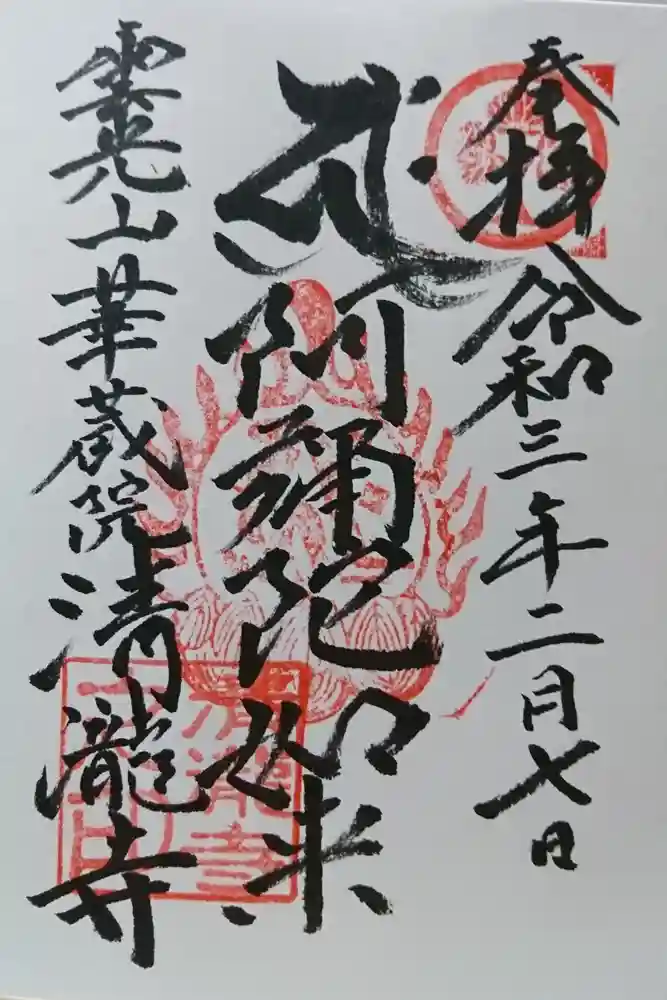 奉拝 令和三年二月七日
阿彌陀如来
雲光山華蔵院清瀧寺
清瀧寺